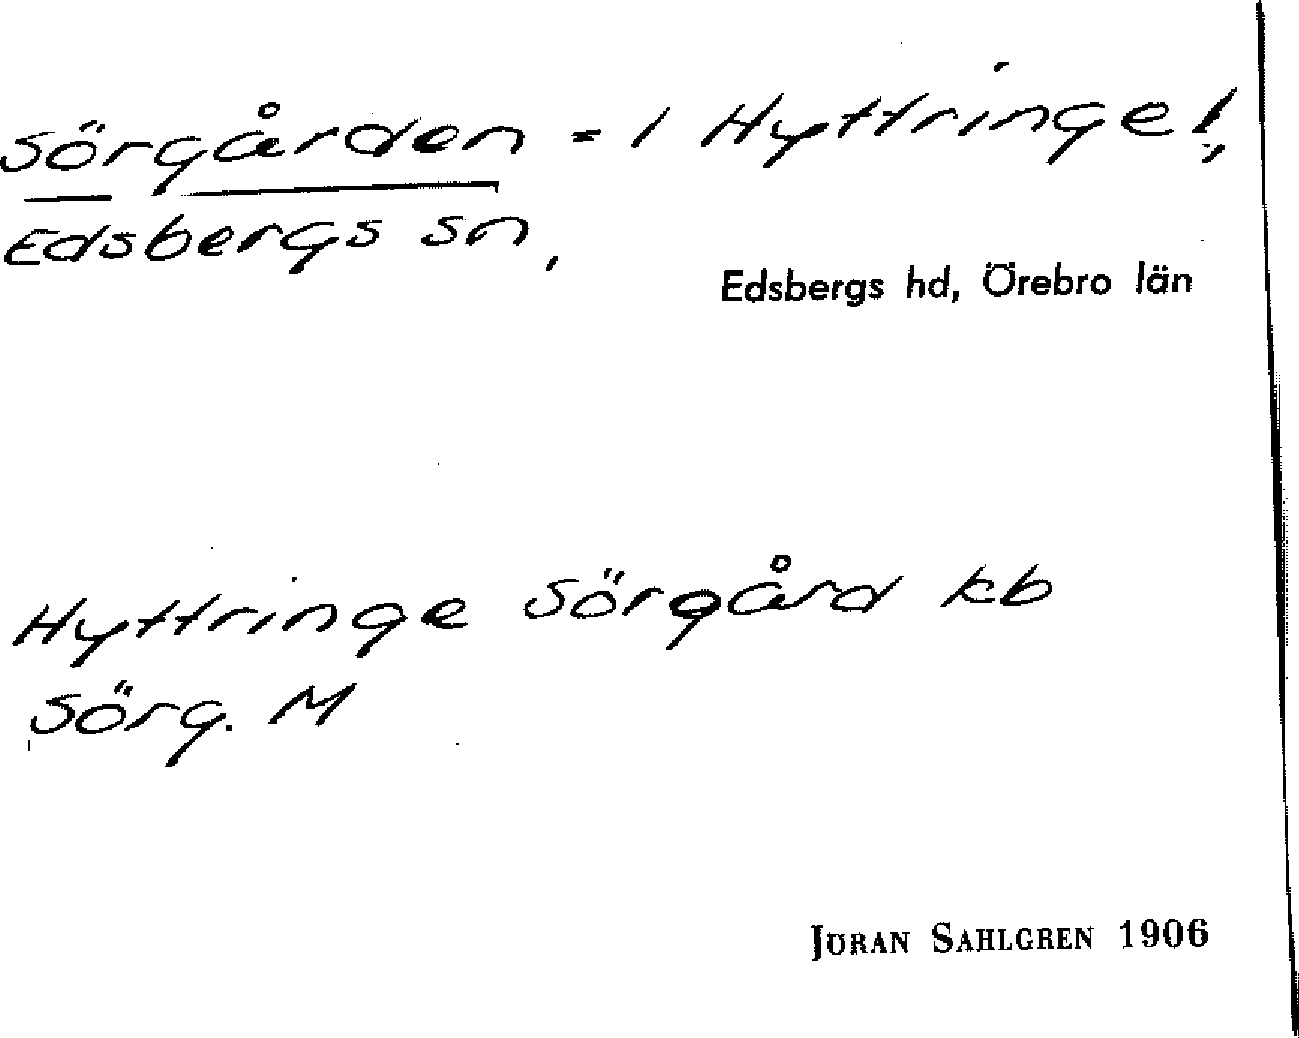 Sörgården = 1 Hyttringe!,
Edsbergs sn,
Edsbergs hd, Örebro län
Hyttringe Sörgård kb
Sörg. M
JÖRAN SAHLGREN 1906